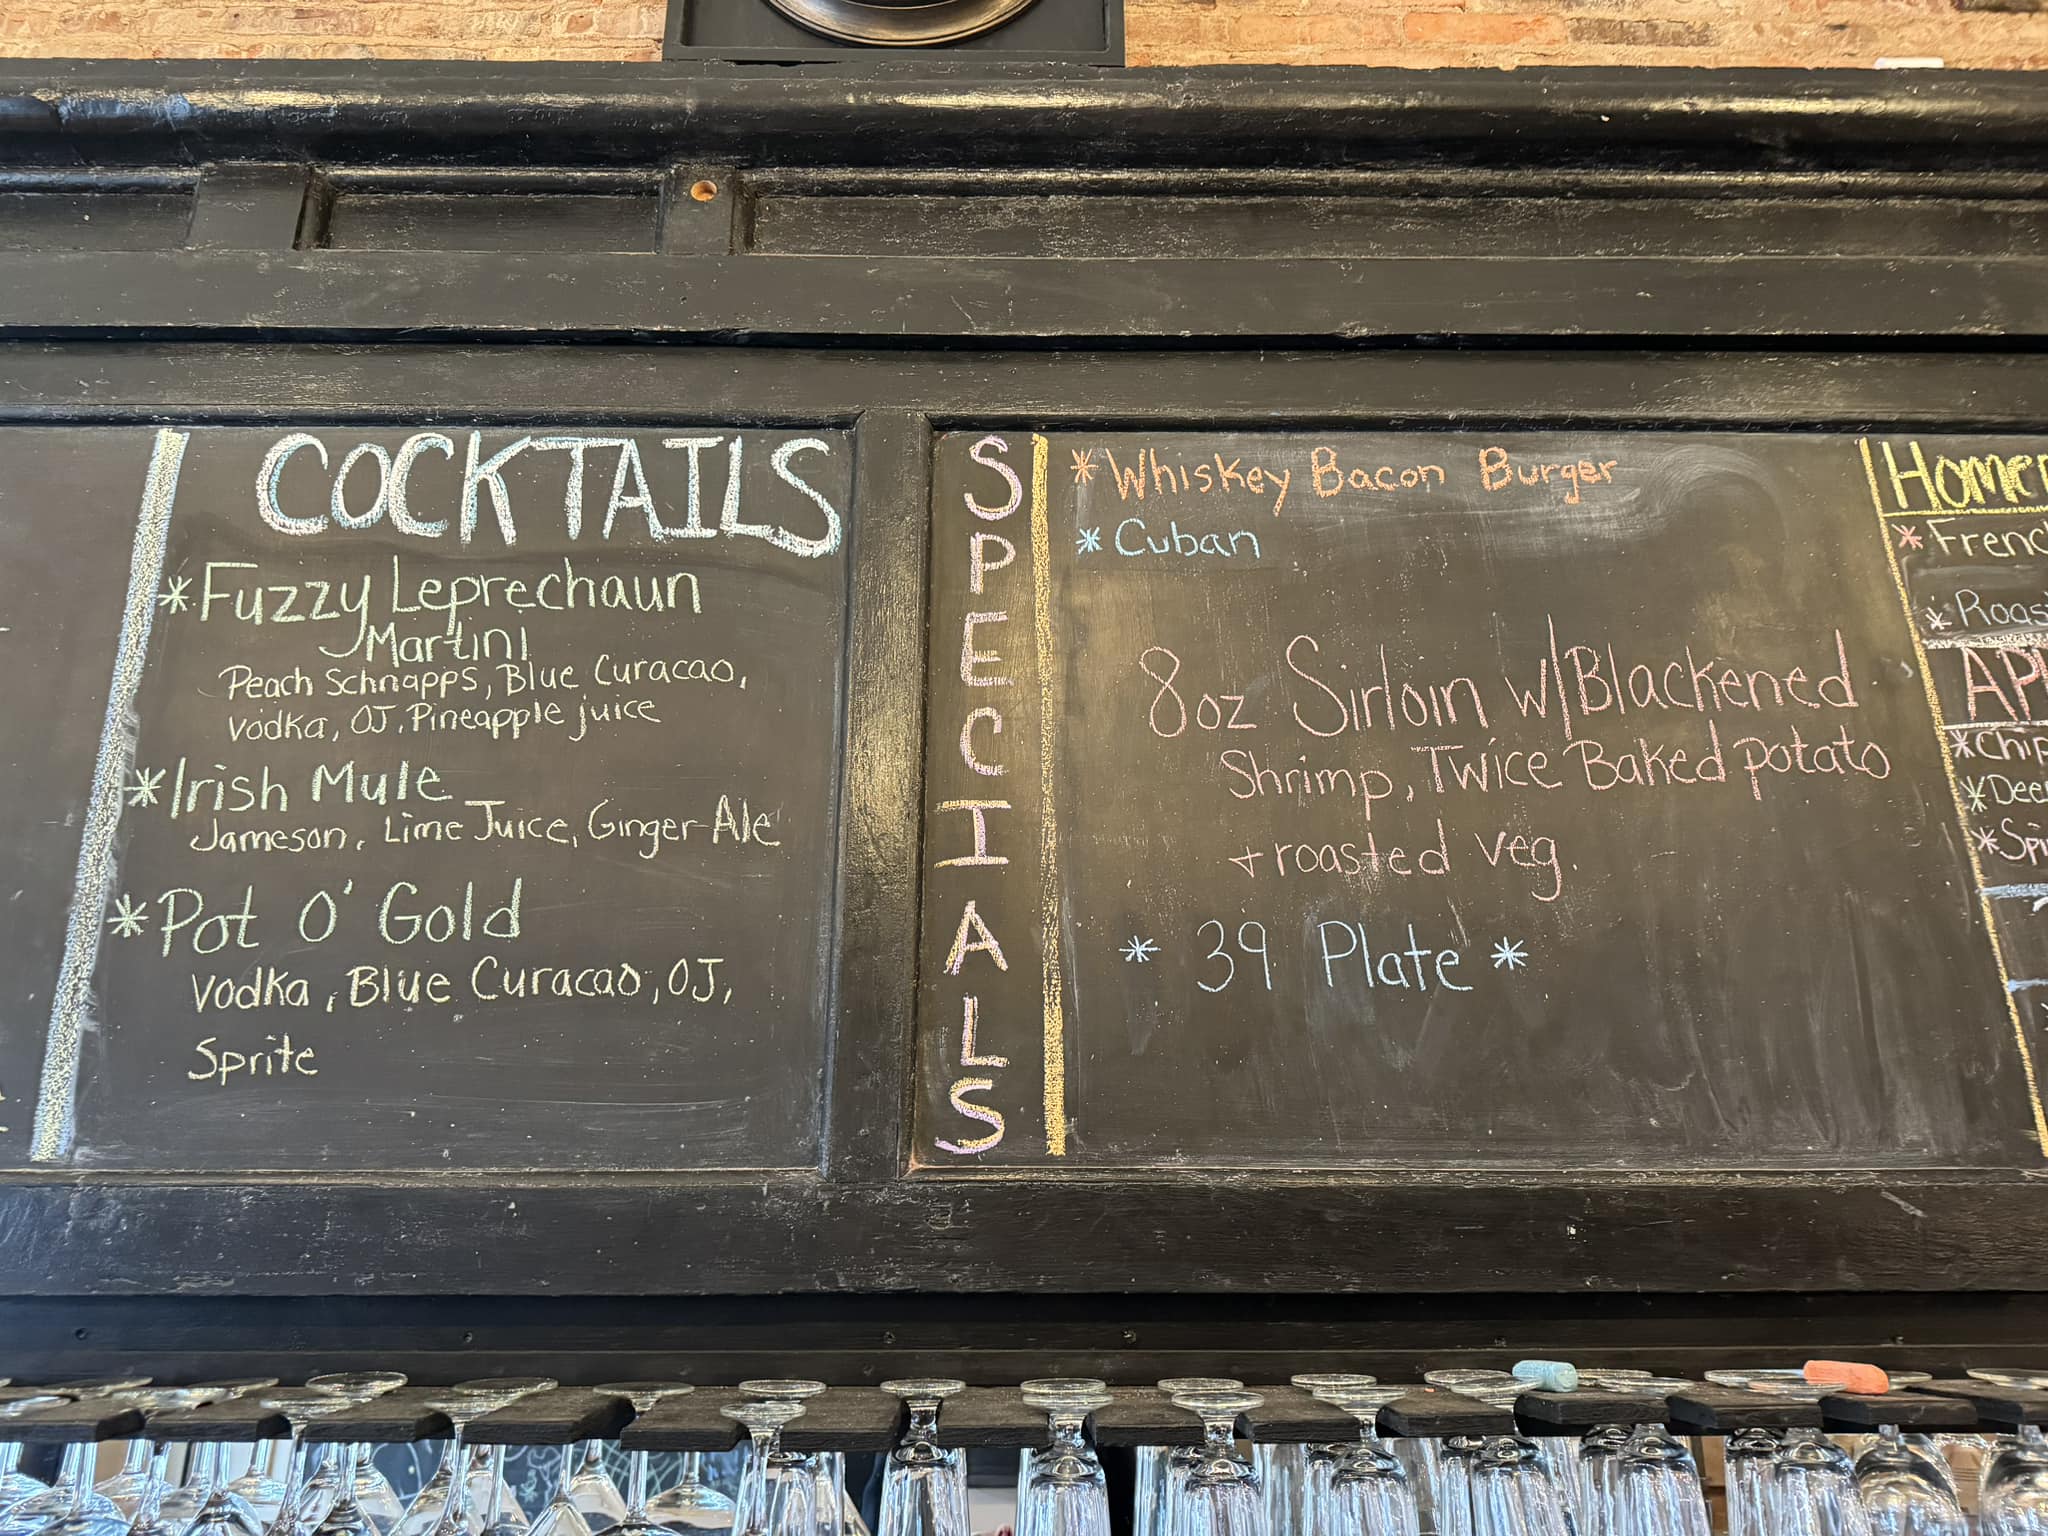 COCKTAILS
*Fuzzy Leprechaun
Martini
Peach Schnapps, Blue Curacao,
Vodka, OJ, Pineapple juice
*Irish Mule
Jameson, Lime Juice, Ginger-Ale
*Pot O' Gold
Vodka, Blue Curacao, OJ,
Sprite
SPECIALS
*Whiskey Bacon Burger
*Cuban
8oz Sirloin w/Blackened
Shrimp, Twice Baked potato
+ roasted veg.
* 39 Plate *